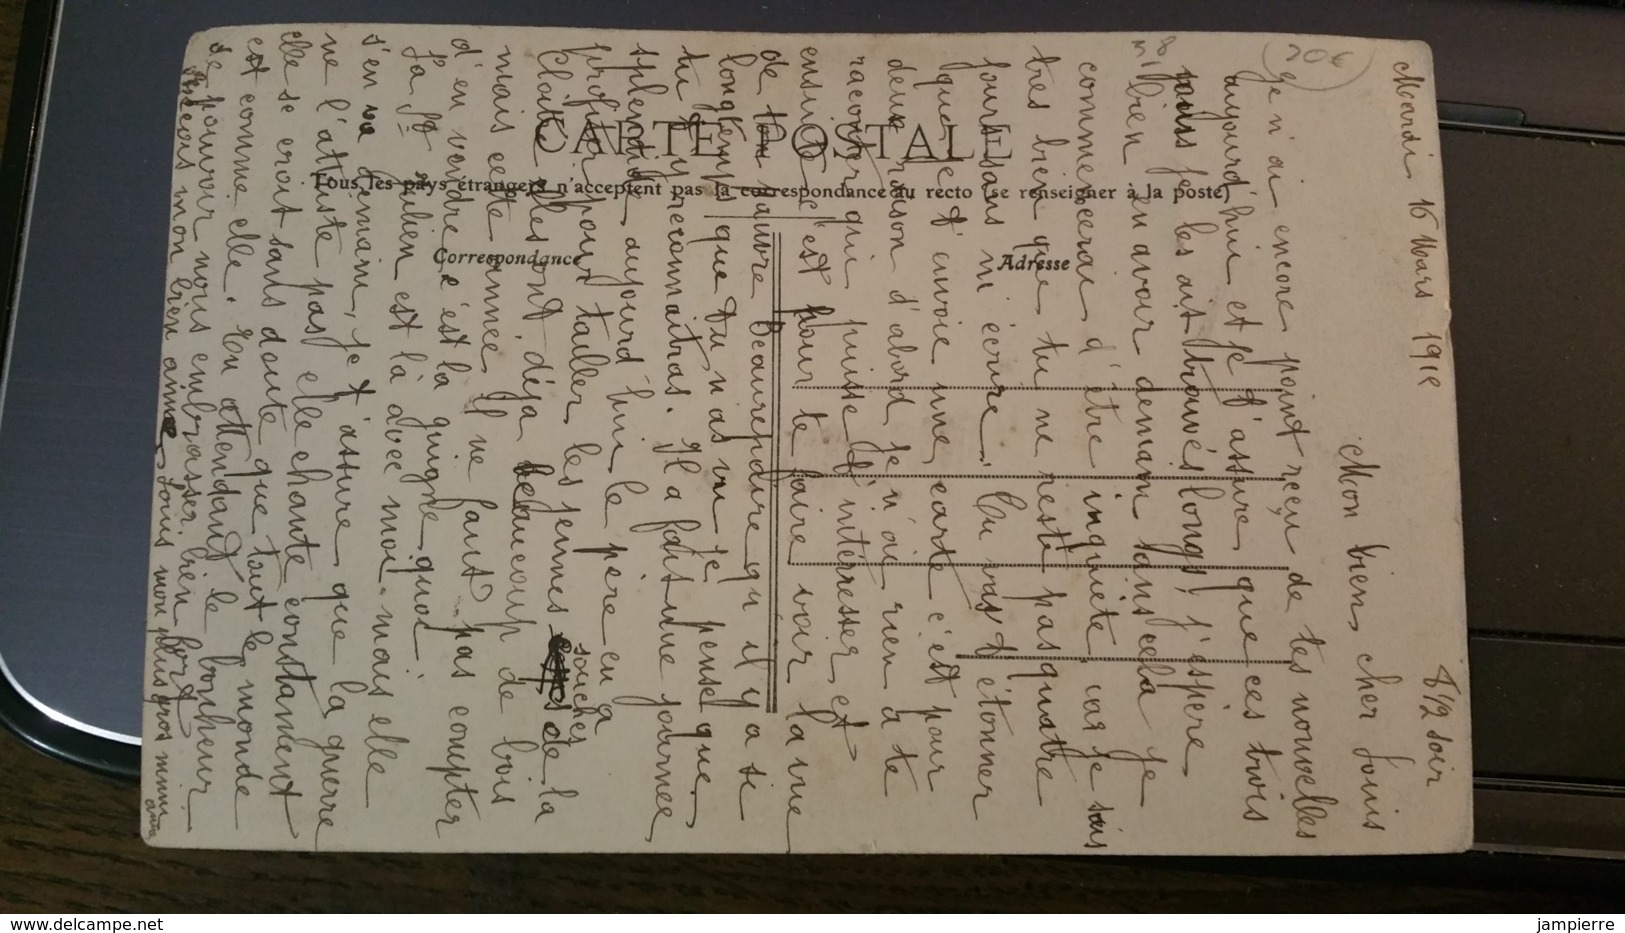 Mardi 16 Mars 191
8 1/2 soir
Mon bien cher Louis
Je n'ai encore point reçu de tes nouvelles
aujourd'hui et je t'assure que ces trois
jours je les ait trouvés longs, j'espère
bien en avoir demain sans cela je
commencerai d'être inquiète, car je sais
très bien que tu ne reste pas quatre
jours sans m'écrire. Tu vas t'étonner
que je t'envoie une carte c'est pour
deux raison d'abord je n'ai rien a te
raconter qui puisse t'intérresser et
ensuite c'est pour te faire voir la vue
de ton pauvre Beaurepaire qu'il y a si
longtemps que tu n'as vu je pense que
tu t'y reconnaitras. Il a fait une journée
splendide aujourd'hui le père en a
profiter pour tailler les jeunes souches de la
Cloite elles ont déja beaucoup de bois
mais cette année il ne faut pas compter
d'en vendre c'est la guigne quoi
Ta Julien est là avec moi mais elle
s'en va demain, je t'assure que la guerre
ne l'attriste pas elle chante constament
elle se croit sans doute que tout le monde
est comme elle. En attendant le bonheur
de pouvoir nous embrasser bien fort
reçois mon bien aimé Louis mon plus gros mimi
30€
CARTE POSTALE
Tous les pays étrangers n'acceptent pas la correspondance au recto (se renseigner à la poste)
Correspondance
Adresse
delcampe.net
jampierre